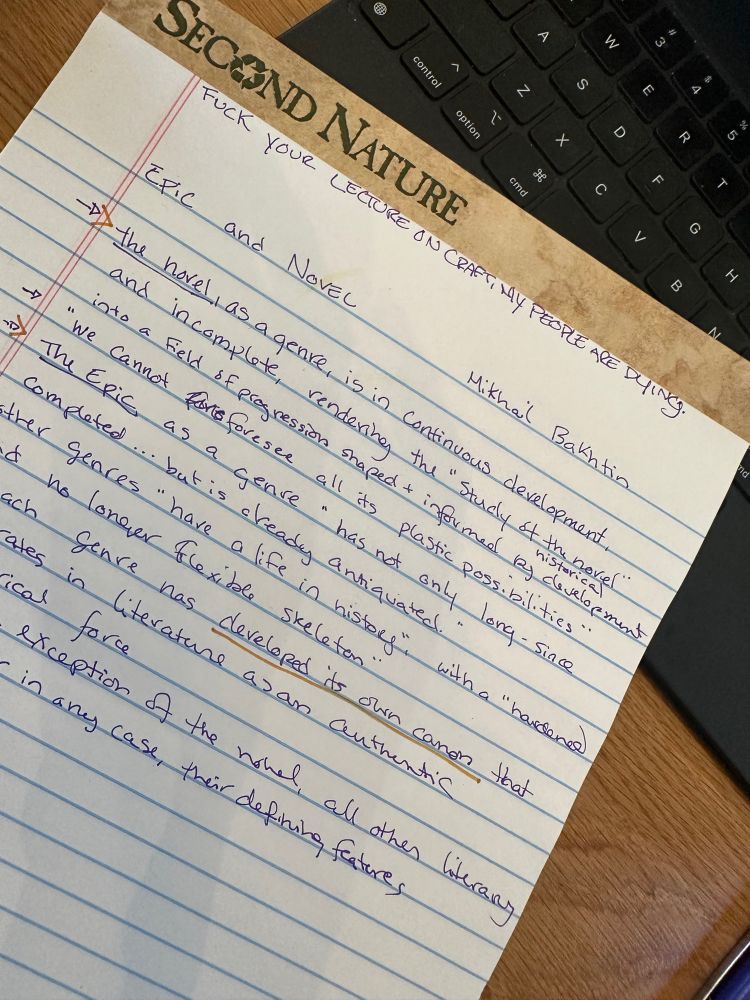 SECOND NATURE
FUCK YOUR LECTURE ON CRAFT, MY PEOPLE ARE DYING.
Epic and Novel
Mikhail Bakhtin
the novel, as a genre, is in continuous development,
and incomplete, rendering the "study of the novel"
into a field of progression shaped + informed by historical development
"We cannot foresee all its plastic possibilities"
The Epic as a genre "has not only long-since
completed... but is already antiquated."
other genres "have a life in history", with a "hardened
no longer flexible skeleton"
each genre has developed its own canon that
in literature as an authentic
force
exception of the novel, all other literary
in any case, their defining features
control
option
cmd
A
W
3
#
4
$
5
%
Z
S
E
R
X
D
T
C
F
V
G
B
H
N